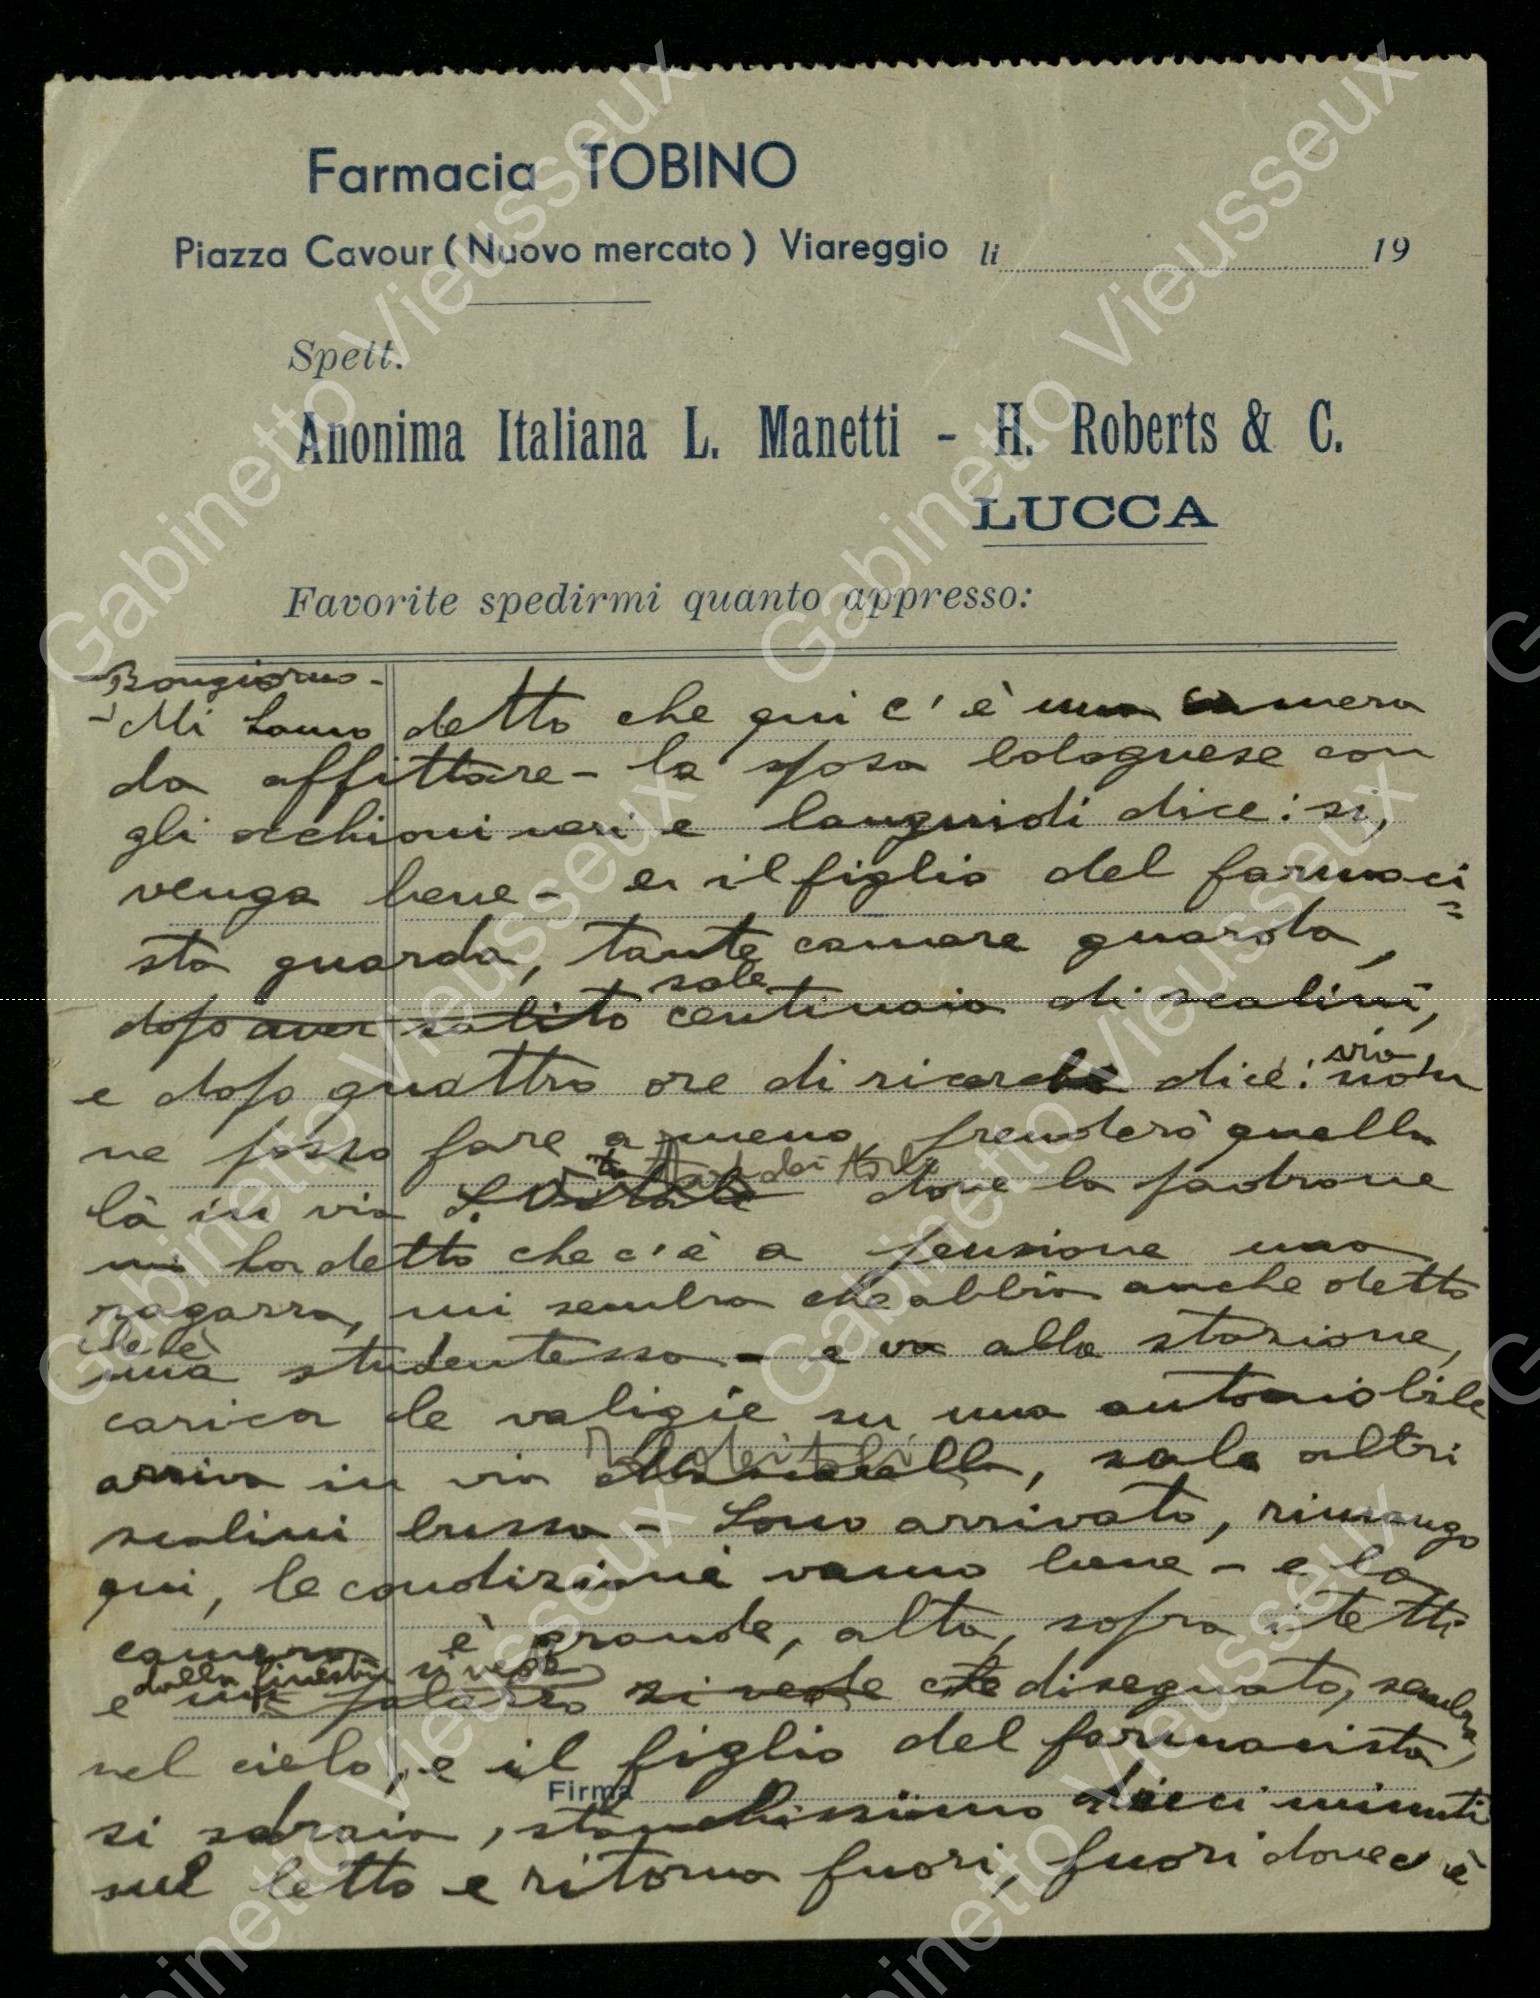 Farmacia TOBINO
Piazza Cavour ( Nuovo mercato ) Viareggio li 19
Spett.
Anonima Italiana L. Manetti - H. Roberts & C.
LUCCA
Favorite spedirmi quanto appresso:
Bongiorno -
- Mi hanno detto che qui c'è una camera
da affittare - la sposa bolognese con
gli occhioni neri e languidi dice: si,
venga bene - e il figlio del farmaci=
sta guarda, tante camere guarda,
sale
dopo aver salito centinaia di scalini,
e dopo quattro ore di ricerche dice:
non
ne posso fare a meno, prenderò quella
là in via S. Vitale dove la padrona
mi ha detto che c'è a pensione una
ragazza, mi sembra che abbia anche detto
che è
una studentessa - e va alla stazione,
carica le valigie su una automobile
arriva in via, sale altri
scalini bussa - Sono arrivato, rimango
qui, le condizioni vanno bene - e la
camera è grande, alta, sopra i tetti
dalla finestra si vede
e un palazzo si vede che disegnato, sembra,
nel cielo, e il figlio del farmacista
Firma
si sdraia, stanchissimo dieci minuti
sul letto e ritorna fuori, fuori dove c'è
Gabinetto Vieusseux